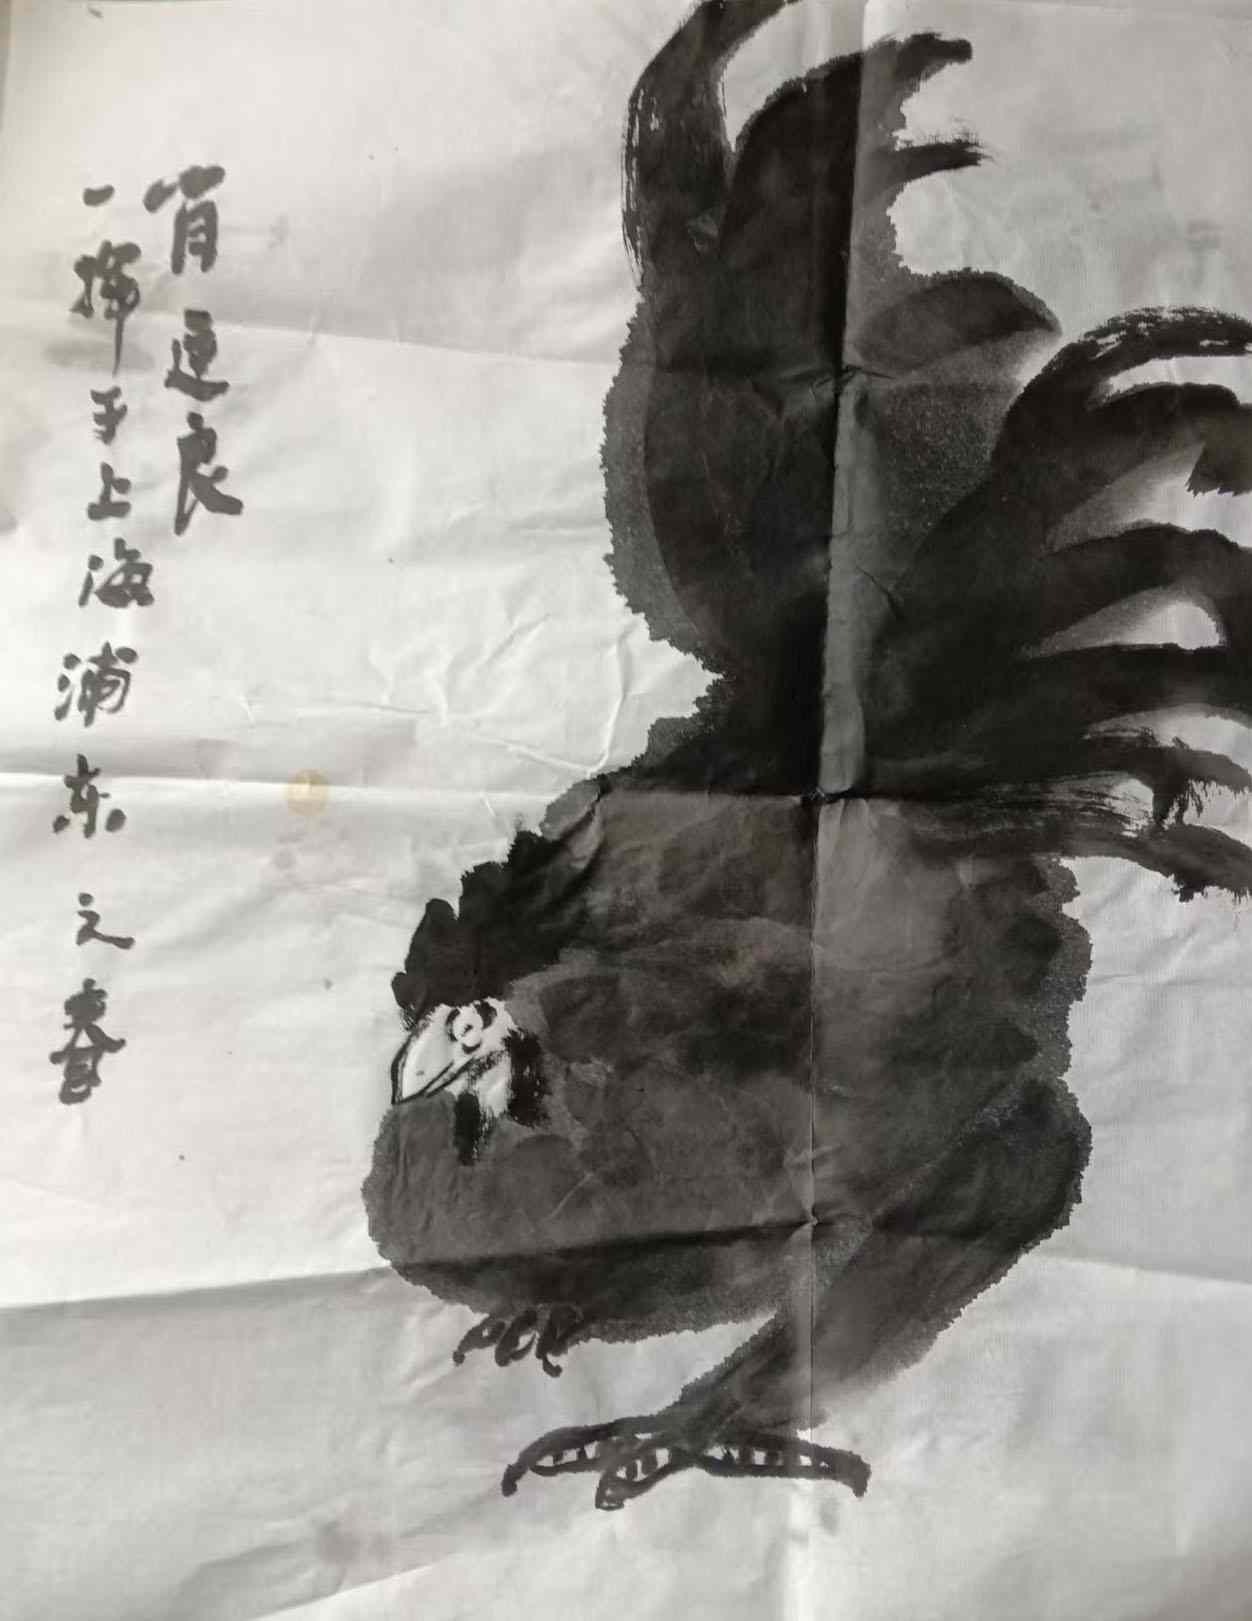 肖连良
一挥于上海浦东之春